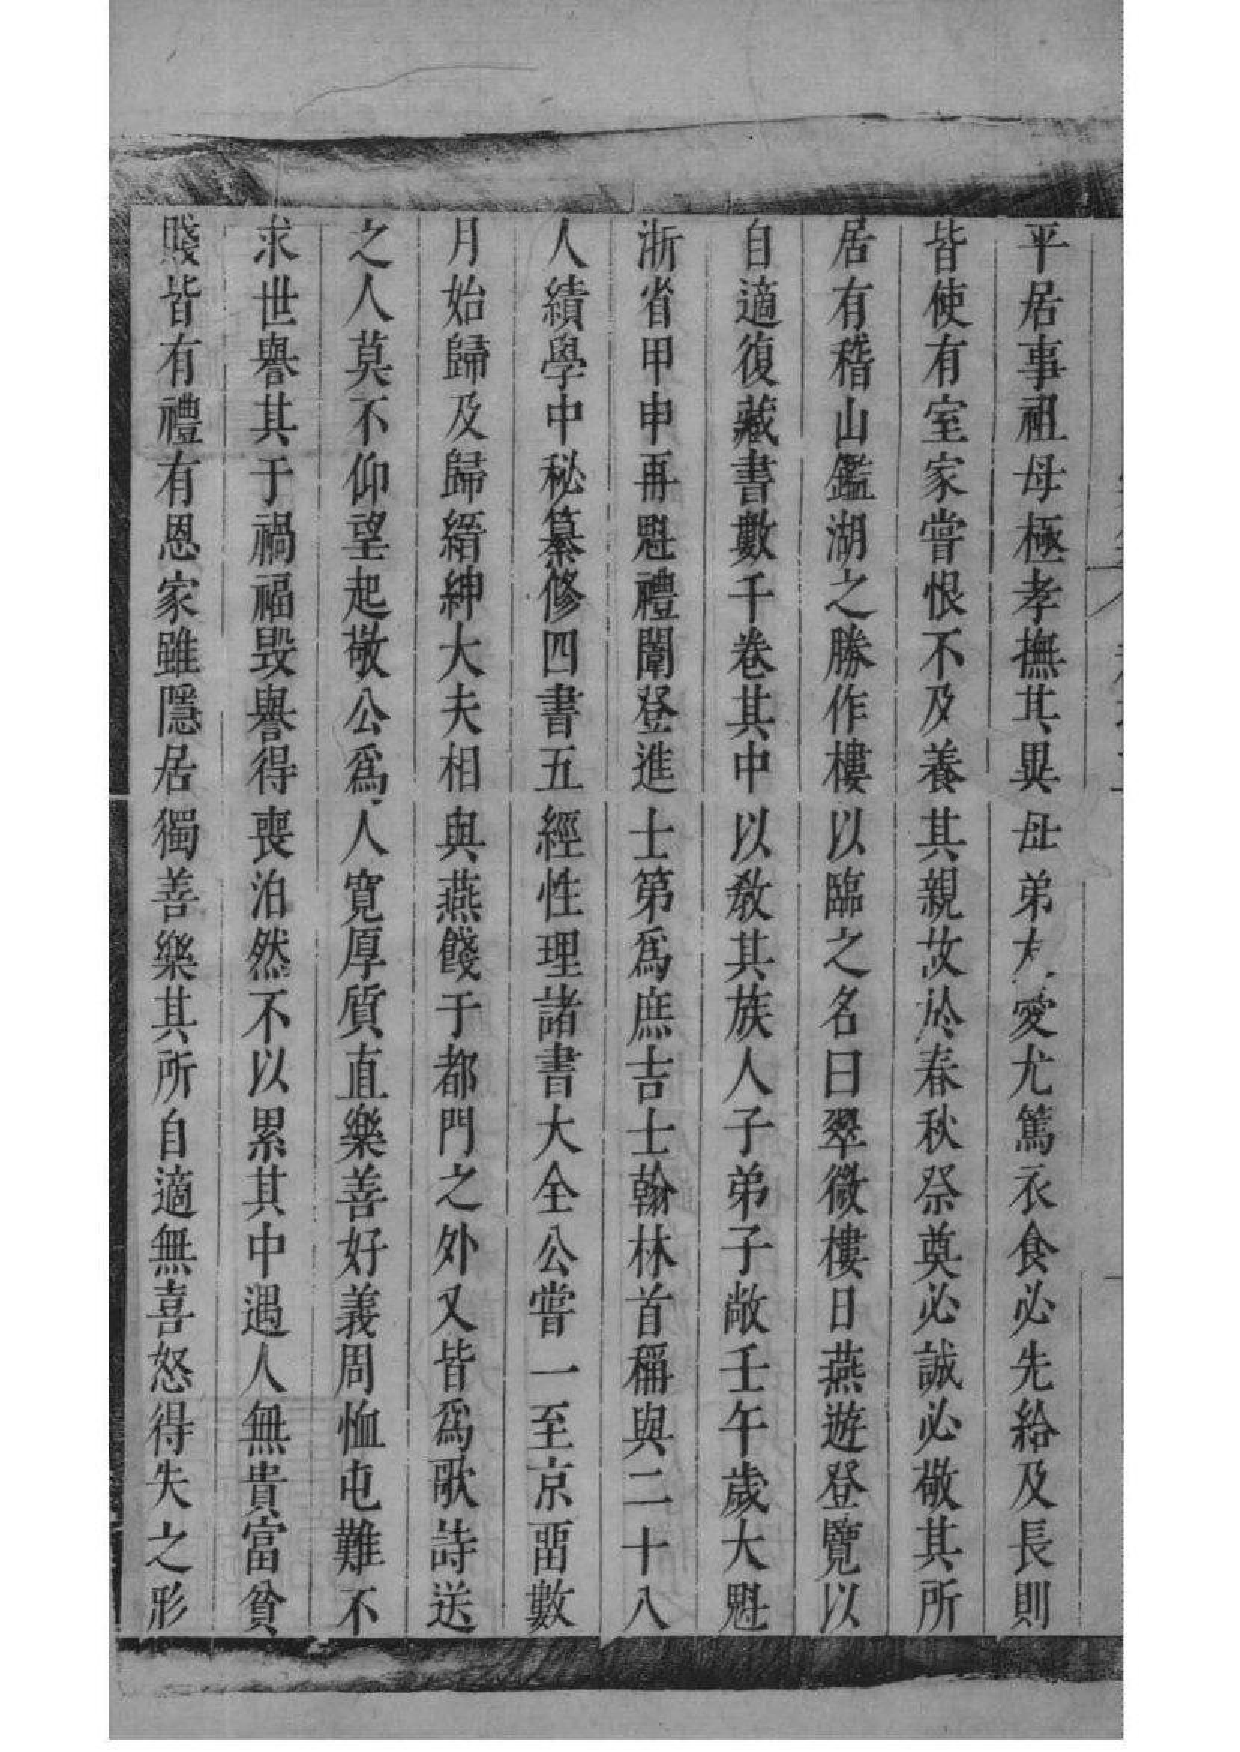 平居事祖母極孝撫其異母弟友愛尤篤衣食必先給及長則
皆使有室家嘗恨不及養其親故於春秋祭奠必誠必敬其所
居有稽山鑑湖之勝作樓以臨之名曰翠微樓日燕遊登覽以
自適復藏書數千卷其中以教其族人子弟子敞壬午歲大魁
浙省甲申再魁禮闈登進士第爲庶吉士翰林首稱與二十八
人績學中秘纂修四書五經性理諸書大全公嘗一至京畱數
月始歸及歸縉紳大夫相與燕餞于都門之外又皆爲歌詩送
之人莫不仰望起敬公爲人寛厚質直樂善好義周恤屯難不
求世譽其于禍福毀譽得喪泊然不以累其中遇人無貴富貧
賤皆有禮有恩家雖隱居獨善樂其所自適無喜怒得失之形